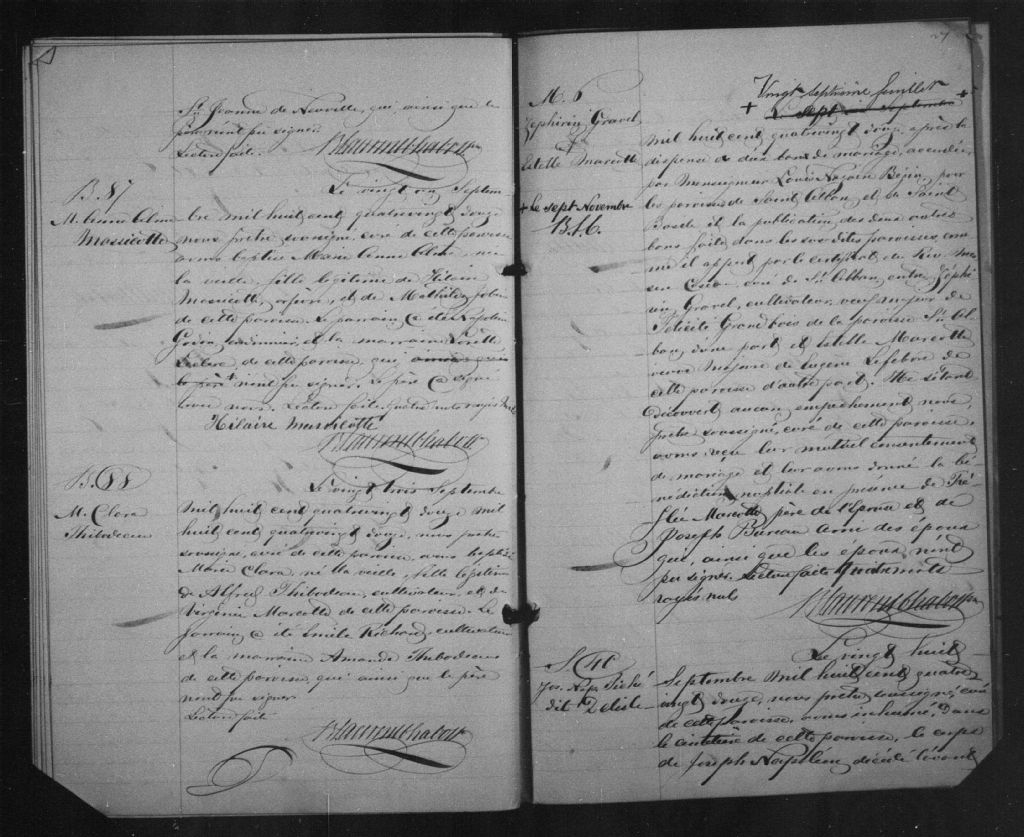 St. Jeanne de Neuville, qui ainsi que le
parrain n'ont pu signer.
Lecture faite.
B. 87
M. Anna Alma
Massicotte
Le vingt un Septem
bre mil huit cent quatrevingt douze
nous prêtre soussigné, curé de cette paroisse
avons baptisé Marie Anna Alma, née
la veille, fille légitime de Hilaire
Massicotte, et de Mathilde
de cette paroisse. Le parrain a été Napoléon
et la marraine
de cette paroisse, qui
n'ont pu signer. Le père a signé
avec nous. Lecture faite. Quatre mots rayés nuls
Hilaire Massicotte
B. 88
M. Clara
Thibodeau
Le vingt trois Septembre
mil huit cent quatrevingt douze mil
huit cent quatrevingt douze, nous prêtre
soussigné, curé de cette paroisse, avons baptisé
Marie Clara, né la veille, fille légitime
de Alfred Thibodeau, cultivateur, et de
Virginie Marcotte de cette paroisse. Le
parrain a été Emile Richard, cultivateur
et la marraine Amanda Thibodeau
de cette paroisse, qui ainsi que le père
n'ont pu signer
Lecture faite
27
M. 6
Zephirin Gravel
&
Estelle Marcotte
+ Le sept Novembre
Vingt septième feuillet
+ Le sept Septembre +
mil huit cent quatrevingt douze, après la
dispense de deux bans de mariage, accordée
par Monseigneur Louis Nazaire Bégin, pour
les paroisses de Saint Alban, et de Saint
Basile et la publication des deux autres
bans faite dans les susdites paroisses, com
me il appert par le certificat de
curé de St. Alban, entre Zephi
rin Gravel, cultivateur, veuf majeur de
Félicité Grandbois de la paroisse St. Al
ban, d'une part et Estelle Marcotte
veuve majeure de Eugène Lefebvre de
cette paroisse d'autre part. Ne s'étant
découvert aucun empêchement nous,
prêtre soussigné, curé de cette paroisse,
avons reçu leur mutuel consentement
de mariage et leur avons donné la bé-
nédiction nuptiale en présence de
Marcotte père de l'épouse et de
Joseph Bureau ami des époux
qui, ainsi que les époux n'ont
pu signer. Lecture faite. Quatre mots
rayés nuls
S. 46
Jos. Nap. Piché
dit Delisle
Le vingt huit
Septembre mil huit cent quatre
vingt douze, nous prêtre soussigné, curé
de cette paroisse, avons inhumé, dans
le cimetière de cette paroisse, le corps
de Joseph Napoléon, décédé l'avant